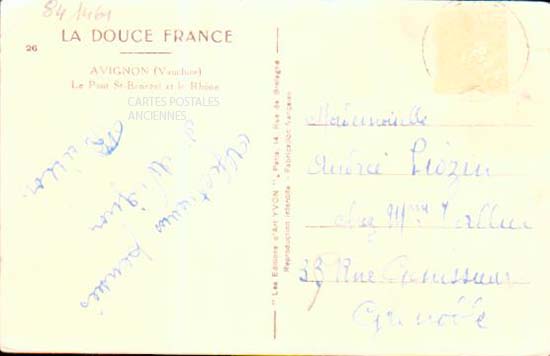 84 1461
LA DOUCE FRANCE
26
AVIGNON (Vaucluse)
Le Pont St-Benezet et le Rhône
CARTES POSTALES
ANCIENNES
Affectueuses pensées
d'Avignon
" Les Editions d'Art YVON ", Paris, 14, Rue de Bretagne
Reproduction interdite - Fabrication française
Mademoiselle
Andrée
chez Mme
33 Rue
Grenoble